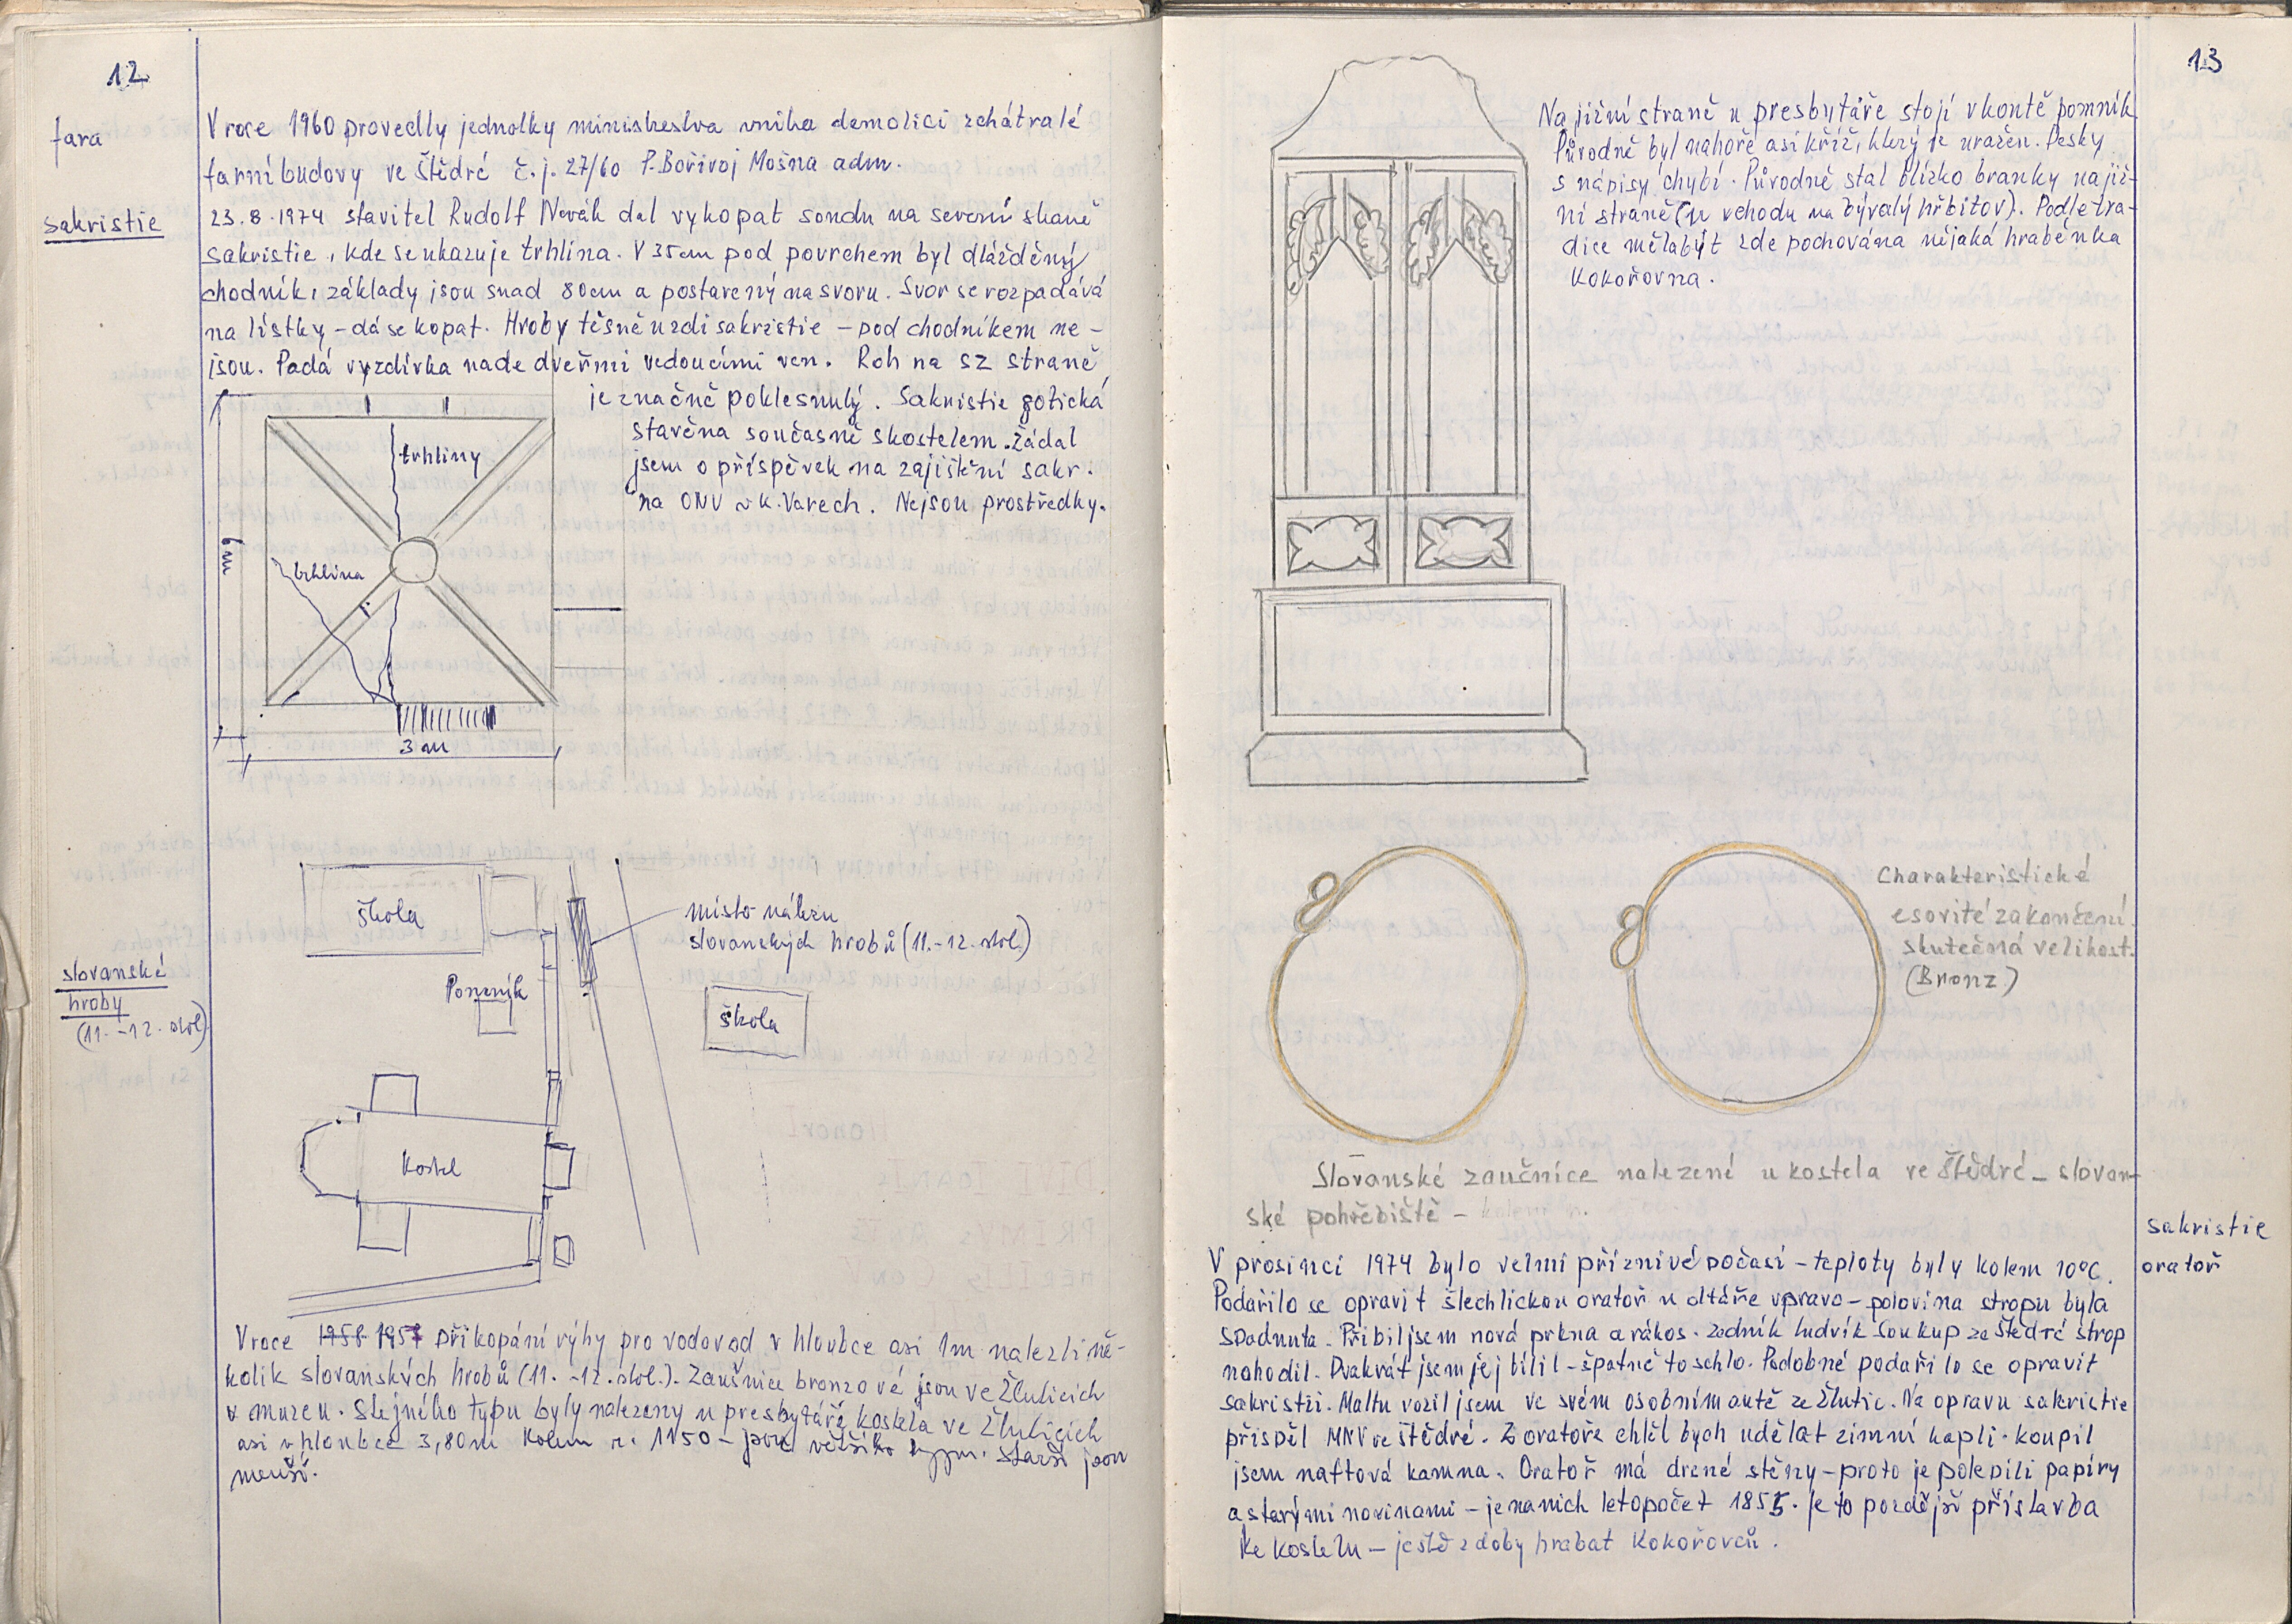 12
fara
V roce 1960 provedly jednotky ministerstva vnitra demolici zchátralé
farní budovy ve Štědré č.j. 27/60 P. Bořivoj Mošna adm.
sakristie
23.8.1974 stavitel Rudolf Novák dal vykopat sondu na severní straně
sakristie, kde se ukazuje trhlina. V 35cm pod povrchem byl dlážděný
chodník, základy jsou snad 80cm a postavený na svoru. Svor se rozpadává
na lístky – dá se kopat. Hroby těsně u zdi sakristie – pod chodníkem ne-
jsou. Padá vyzdívka nade dveřmi vedoucími ven. Roh na sz straně
je značně poklesnulý. Sakristie gotická
stavěna současně s kostelem. Žádal
jsem o příspěvek na zajištění sakr.
na ONV v K. Varech. Nejsou prostředky.
trhliny
6 m
trhlina
3 m
škola
místo nálezu
slovanských hrobů (11.-12. stol.)
Pomník
škola
slovanské
hroby
(11.-12. stol)
Kostel
V roce 1958 1957 při kopání rýhy pro vodovod v hloubce asi 1m nalezli ně-
kolik slovanských hrobů (11.-12. stol.). Zaušnice bronzové jsou ve Žluticích
v muzeu. Stejného typu byly nalezeny u presbytáře kostela ve Žluticích
asi v hloubce 3,80m kolem r. 1150 – jsou většího typu. Starší jsou
menší.
13
Na jižní straně u presbytáře stojí v koutě pomník
Původně byl nahoře asi kříž, který je uražen. Desky
s nápisy chybí. Původně stál blízko branky na již-
ní straně (u vchodu na bývalý hřbitov). Podle tra-
dice měla být zde pochována nějaká hraběnka
Kokořovna.
Charakteristické
esovité zakončení.
skutečná velikost.
(Bronz)
Slovanské zaučnice nalezené u kostela ve Štědré – slovan-
ské pohřebiště –
sakristie
oratoř
V prosinci 1974 bylo velmi příznivé počasí – teploty byly kolem 10°C.
Podařilo se opravit šlechlickou oratoř u oltáře vpravo – polovina stropu byla
spadnuta. Přibil jsem nová prkna a rákos. Zedník Ludvík Soukup ze Štědré strop
nahodil. Dvakrát jsem jej bílil – špatně to schlo. Podobné podařilo se opravit
sakristii. Maltu vozil jsem ve svém osobním autě ze Žlutic. Na opravu sakristie
přispěl MNV ve Štědré. Z oratoře chtěl bych udělat zimní kapli. koupil
jsem naftová kamna. Oratoř má dřené stěny – proto je polepili papíry
a starými novinami – je na nich letopočet 1855. Je to pozdější přístavba
ke kostelu – ještě z doby hrabat Kokořovců.